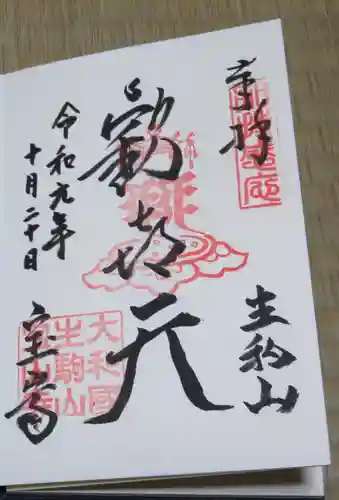 奉拝
生駒山
歓喜天
令和元年
十月二十日
宝山寺
大和國
生駒山
寳山寺